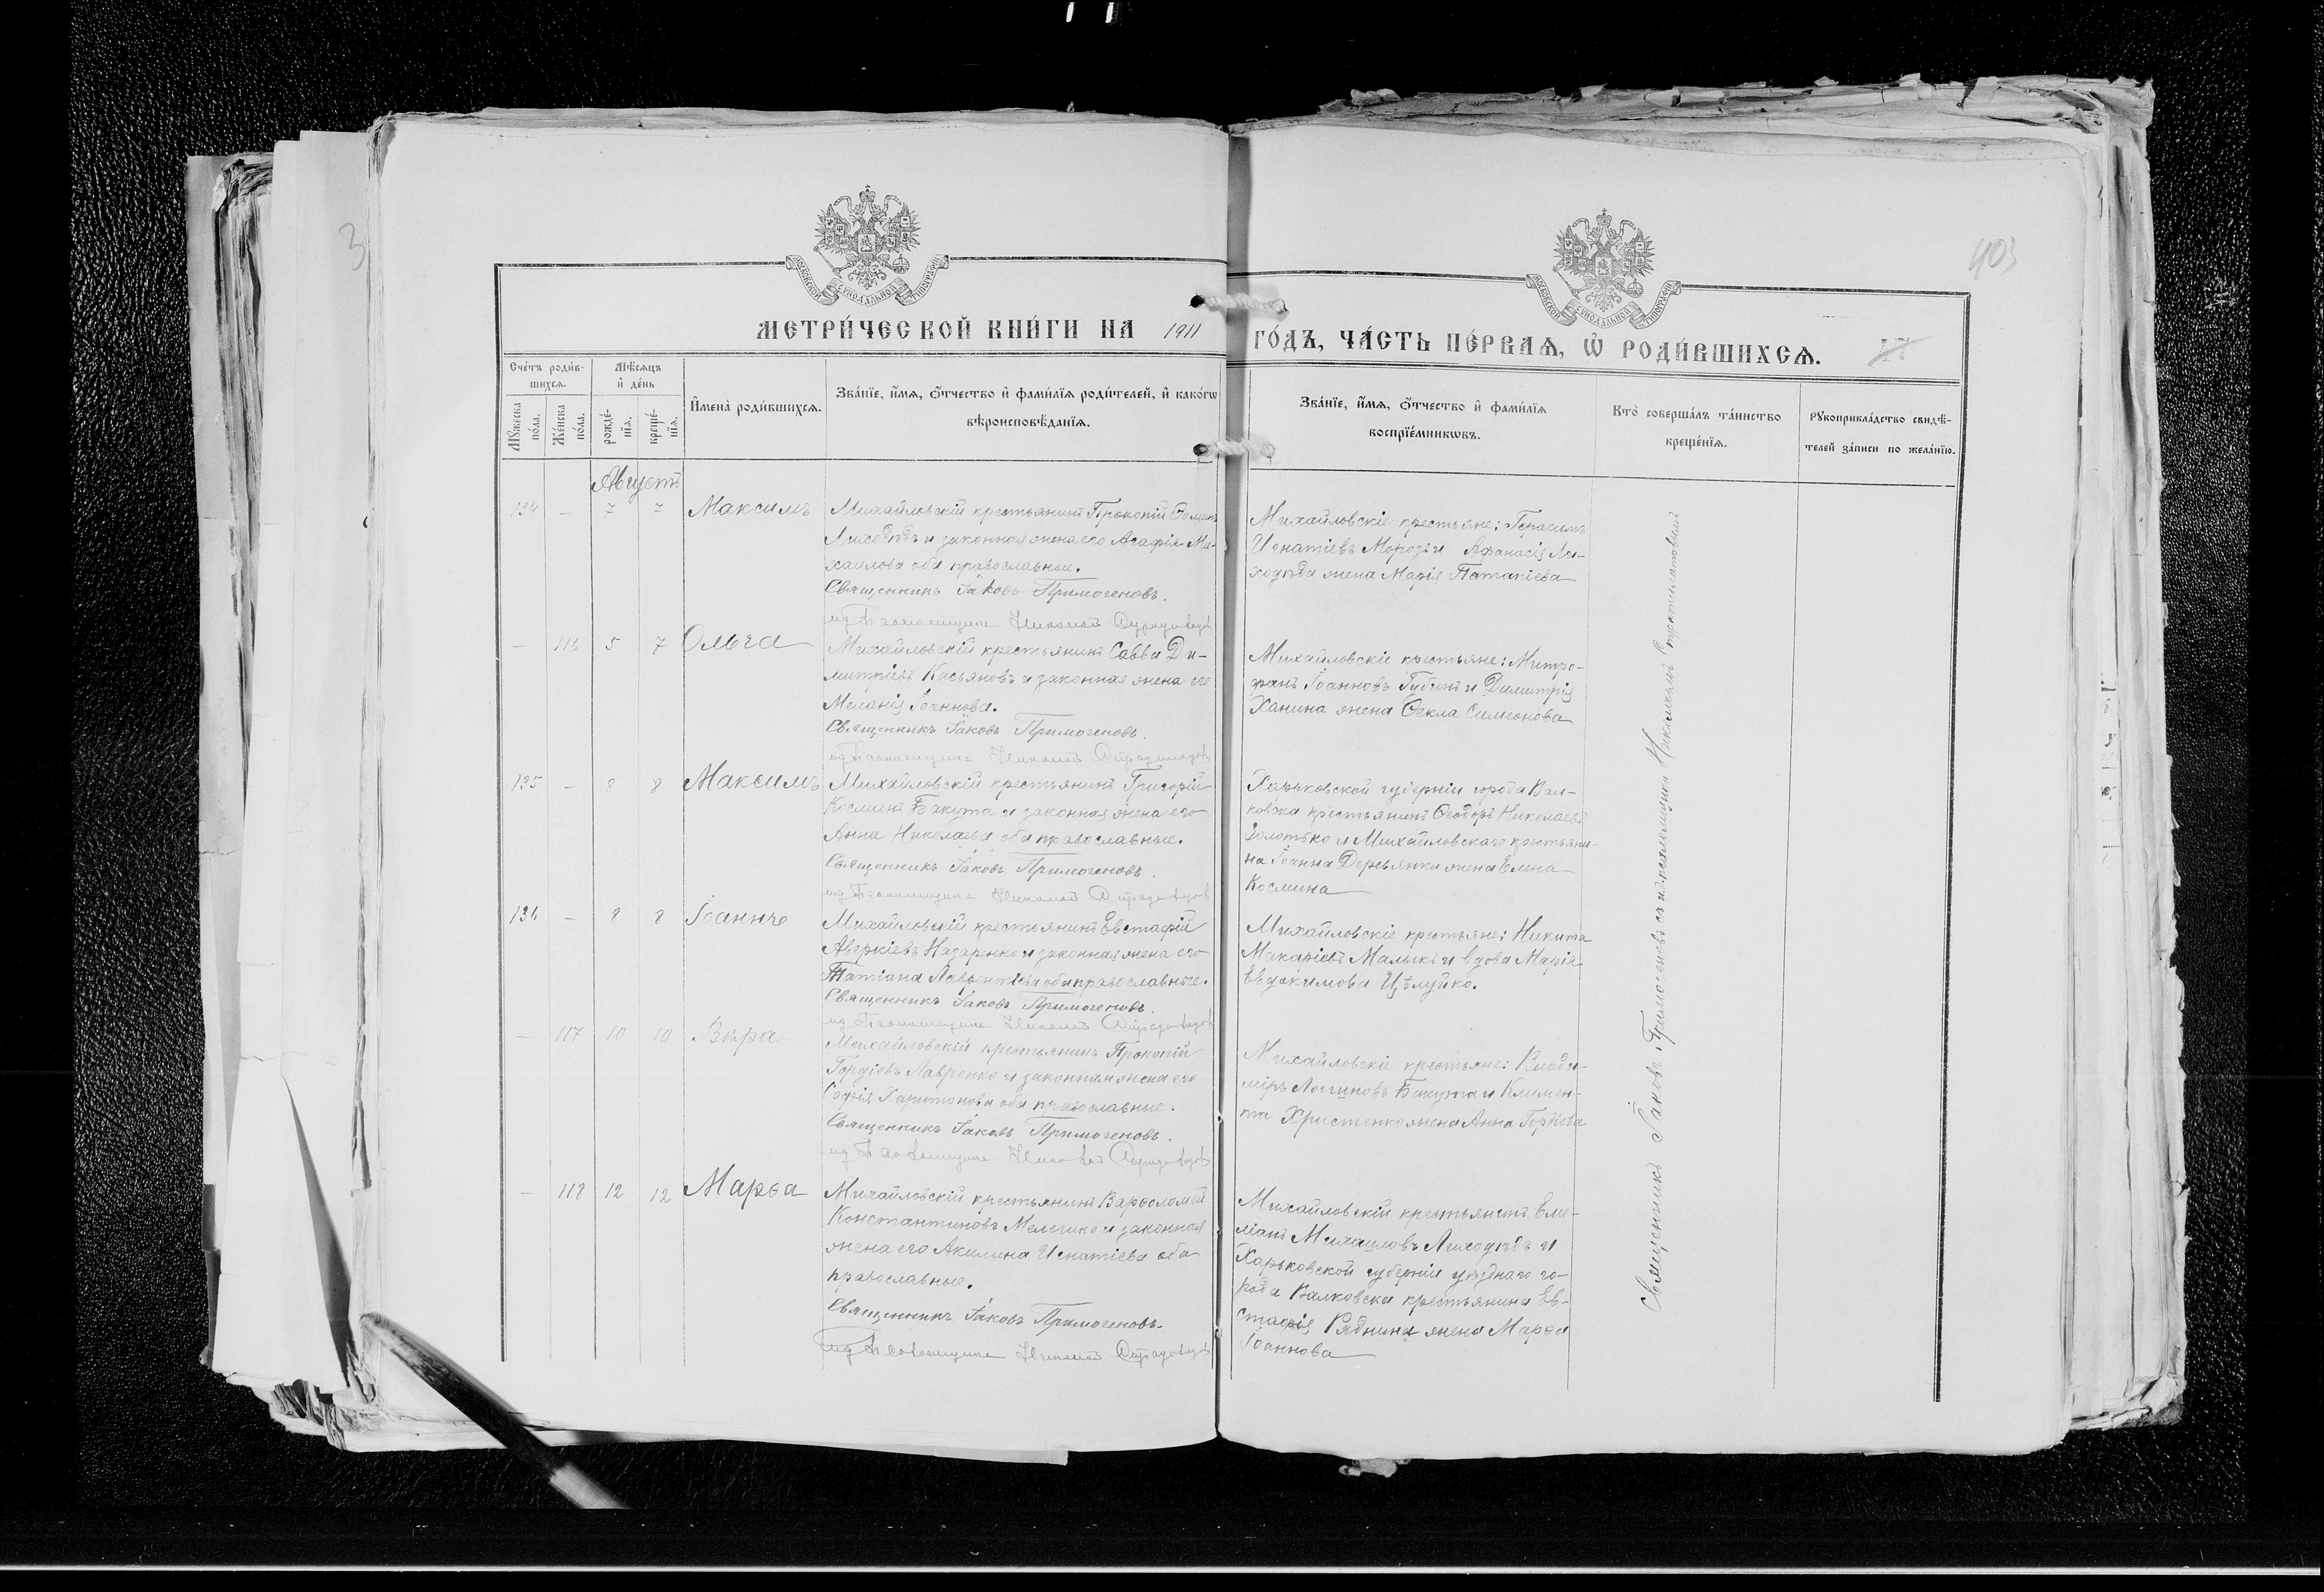 3
403
МОСКОВСКОЙ СѴНОДАЛЬНОЙ ТИПОГРАФІИ
МОСКОВСКОЙ СѴНОДАЛЬНОЙ ТИПОГРАФІИ
МЕТРИ́ЧЕСКОЙ КНИ́ГИ НА 1911
ГО́ДЪ, ЧА́СТЬ ПЕ́РВАѦ, Ѡ҆ РОДИ́ВШИХСѦ. 17
Сче́тъ роди́в-
шихсѧ.
Мꙋ́жеска
по́ла.
Же́нска
по́ла.
Мѣ́сѧцъ
и҆ де́нь
рожде́-
нїѧ.
креще́-
нїѧ.
И҆мена̀ роди́вшихсѧ.
Зва́нїе, и҆́мѧ, ѻ҆́тчество и҆ фами́лїѧ роди́телей, и҆ како́гѡ
вѣроисповѣ́данїѧ.
Зва́нїе, и҆́мѧ, ѻ҆́тчество и҆ фами́лїѧ
воспрїе́мникѡвъ.
Кто̀ соверша́лъ та́инство
креще́нїѧ.
Рꙋкоприкла́дство свидѣ́-
телей за́писи по жела́нїю.
Августъ
134 — 7 7 Максимъ
Михайловскій крестьянинъ Прокопій Ѳоминъ
Лиходѣдъ и законная жена его Агафія Ми-
хаилова оба православные.
Священникъ Іаковъ Примогеновъ.
ид псаломщика Николай
Михайловскіе крестьяне: Герасимъ
Игнатіевъ Морозъ и Афанасія Ли-
ходѣда жена Марія Патапіева
— 116 5 7 Ольга
Михайловскій крестьянинъ Савва Ди-
митріевъ Касьяновъ и законная жена его
Меланія Іоаннова.
Священникъ Іаковъ Примогеновъ.
ид псаломщика Николай
Михайловскіе крестьяне: Митро-
фанъ Іоанновъ Губинъ и Димитрія
Ханина жена Ѳекла Симеонова
135 — 8 8 Максимъ
Михайловскій крестьянинъ Григорій
Косминъ Бакута и законная жена его
Анна Николаева оба православные.
Священникъ Іаковъ Примогеновъ.
ид псаломщика Николай
Харьковской губерніи города Вал-
ковска крестьянинъ Ѳеодоръ Николаевъ
Золотько и Михайловскаго крестьяни-
на Іоанна Деревянки жена Елена
Космина
136 — 8 8 Іоаннъ
Михайловскій крестьянинъ Евстафій
Аверкіевъ Назаренко и законная жена его
Татіана Лаврентіева оба православные.
Священникъ Іаковъ Примогеновъ.
ид псаломщика Николай
Михайловскіе крестьяне: Никита
Макаріевъ Малыкъ и вдова Марія
Евдокимова Цѣлуйко.
— 117 10 10 Вѣра
Михайловскій крестьянинъ Прокопій
Гордіевъ Лавренко и законная жена его
Софія Харитонова оба православные.
Священникъ Іаковъ Примогеновъ.
ид псаломщика Николай
Михайловскіе крестьяне: Влади-
міръ Логгиновъ Бакута и Климен-
та Христенко жена Анна Гордіева
— 118 12 12 Марѳа
Михайловскій крестьянинъ Варѳоломей
Константиновъ Мелешко и законная
жена его Акилина Игнатіева оба
православные.
Священникъ Іаковъ Примогеновъ.
ид псаломщика Николай
Михайловскій крестьянинъ Еме-
ліанъ Михаиловъ Лиходѣдъ и
Харьковской губерніи уѣзднаго го-
рода Валковска крестьянина Ев-
стафія Ряднина жена Марѳа
Іоаннова
Священникъ Іаковъ Примогеновъ съ и.д. псаломщика Николаемъ